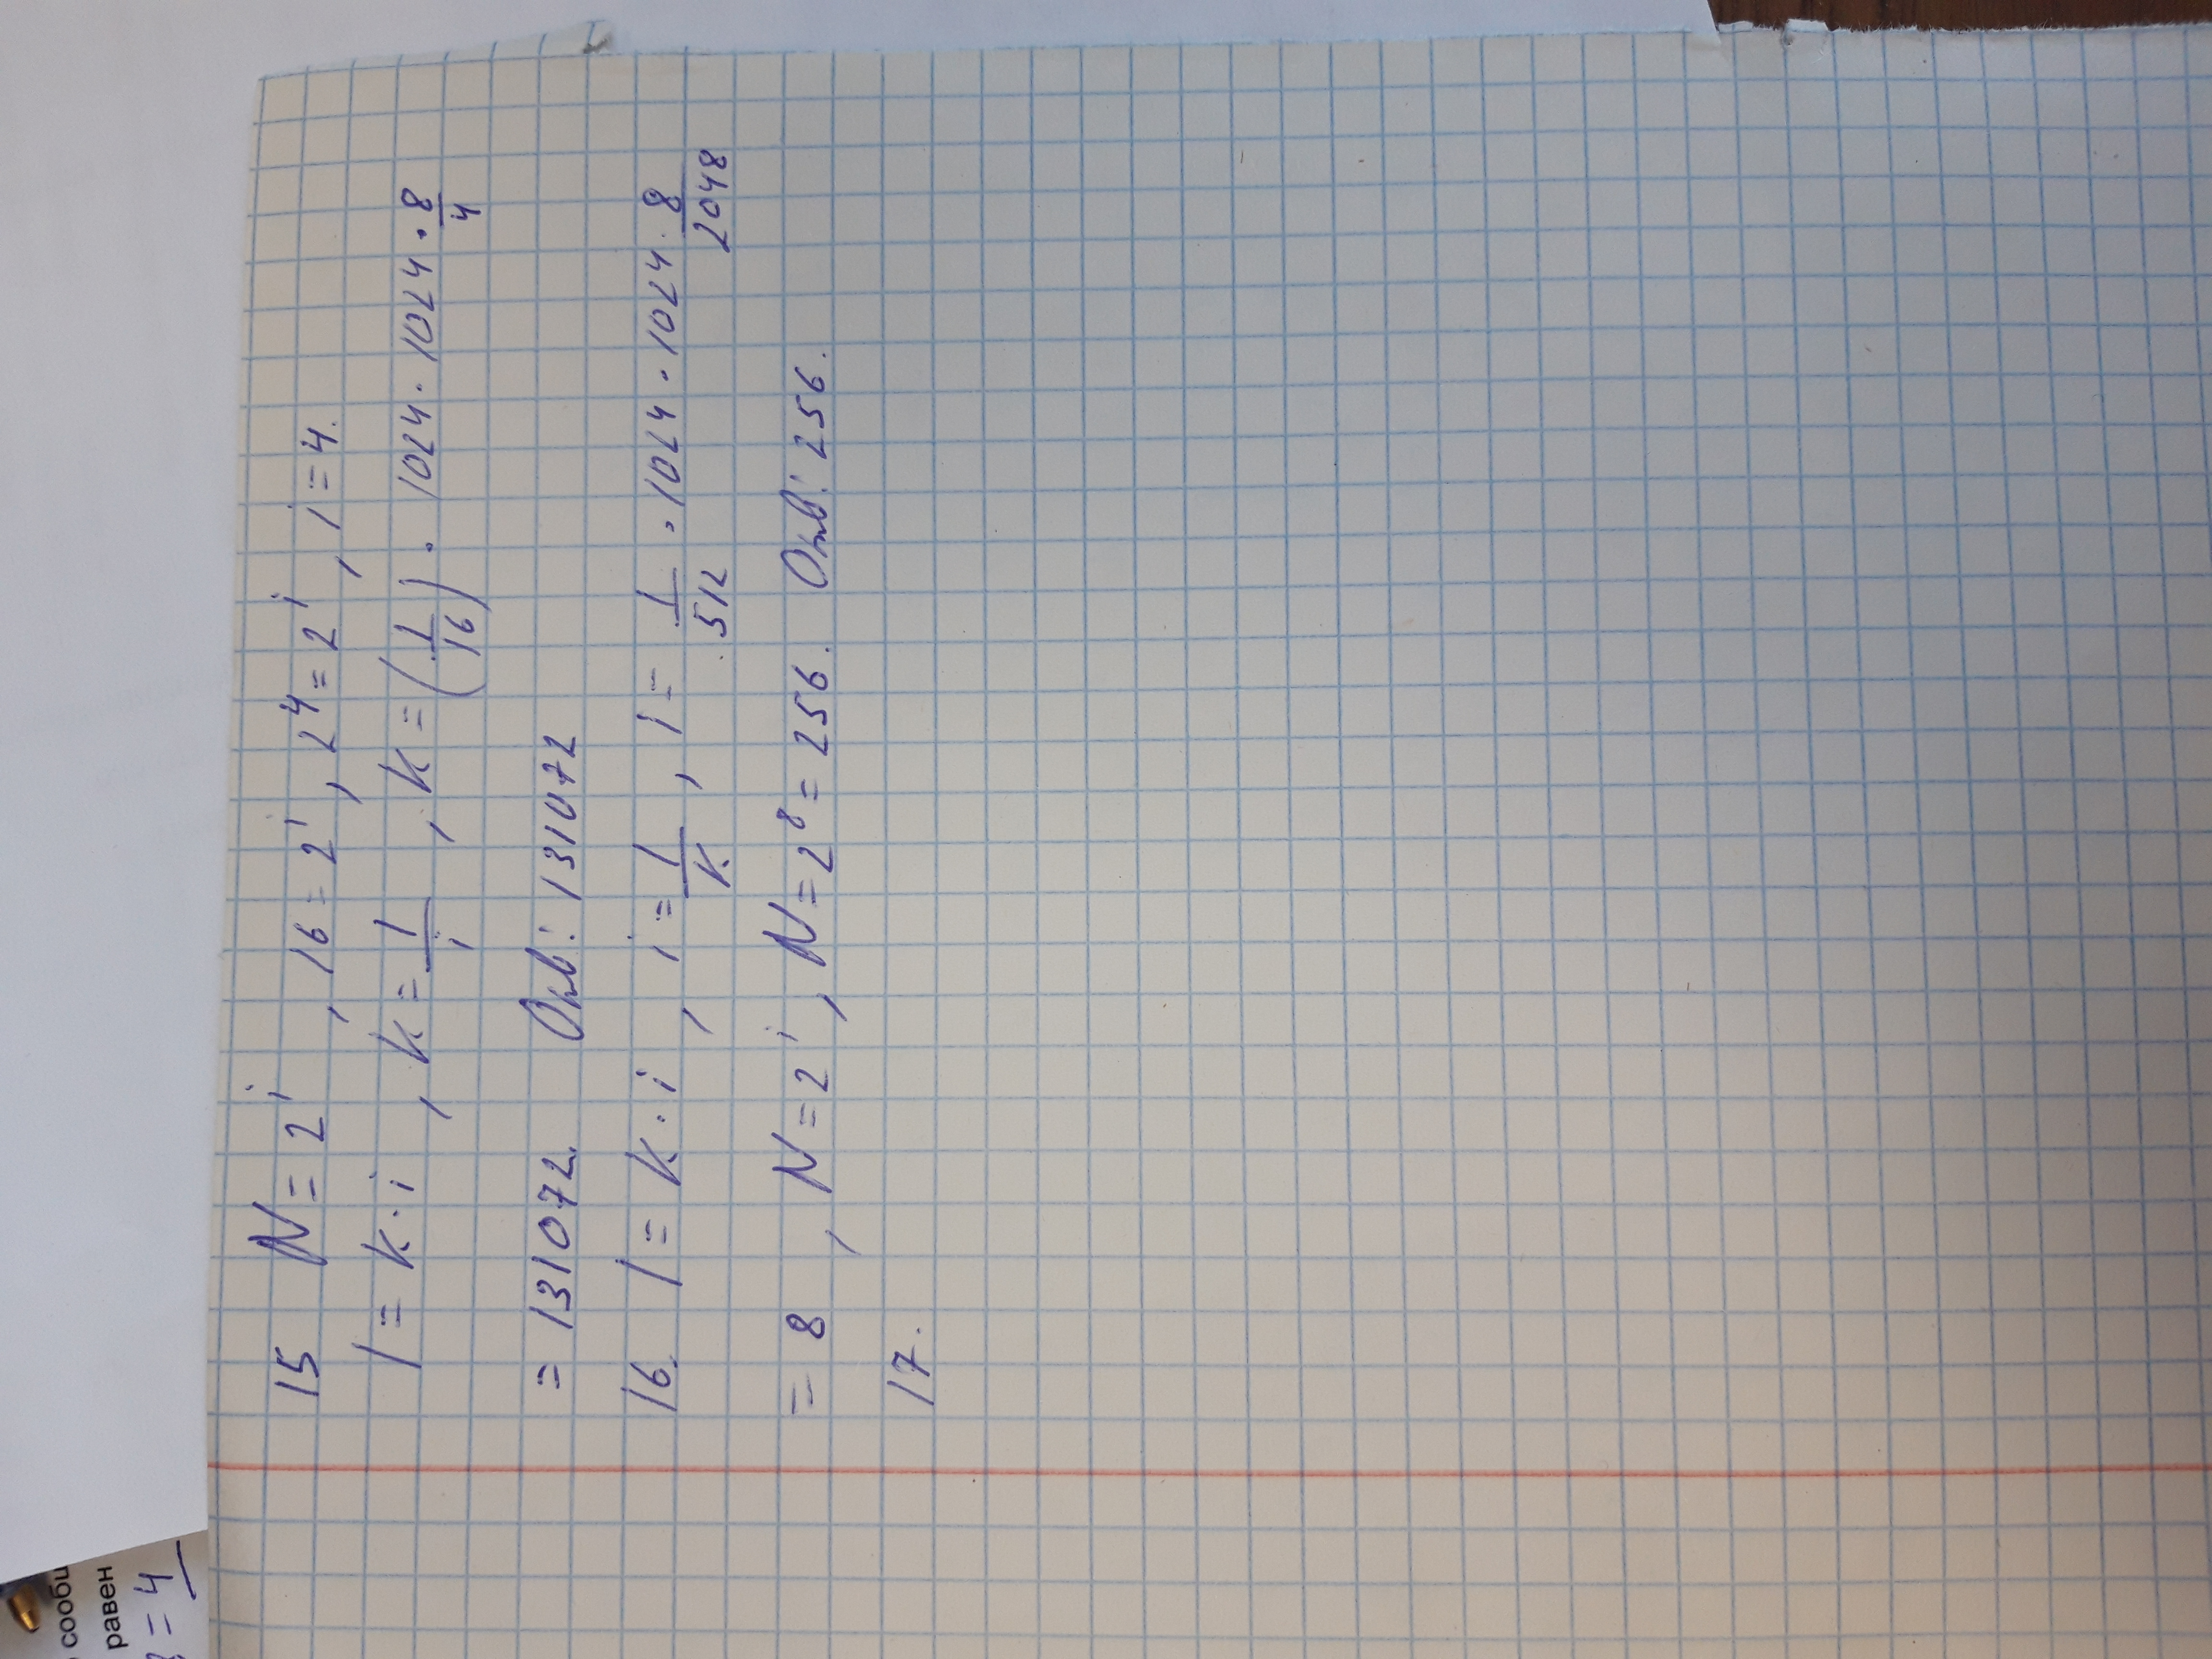 15 N = 2^i, 16 = 2^i, 2^4 = 2^i, i = 4.
I = K · i, K = I/i, K = (1/16) · 1024 · 1024 · 8/4
= 131072. Отв: 131072
16. I = K · i, i = I/K, i = 1/512 · 1024 · 1024 · 8/2048
= 8, N = 2^i, N = 2^8 = 256. Отв: 256.
17.
равен
= 4